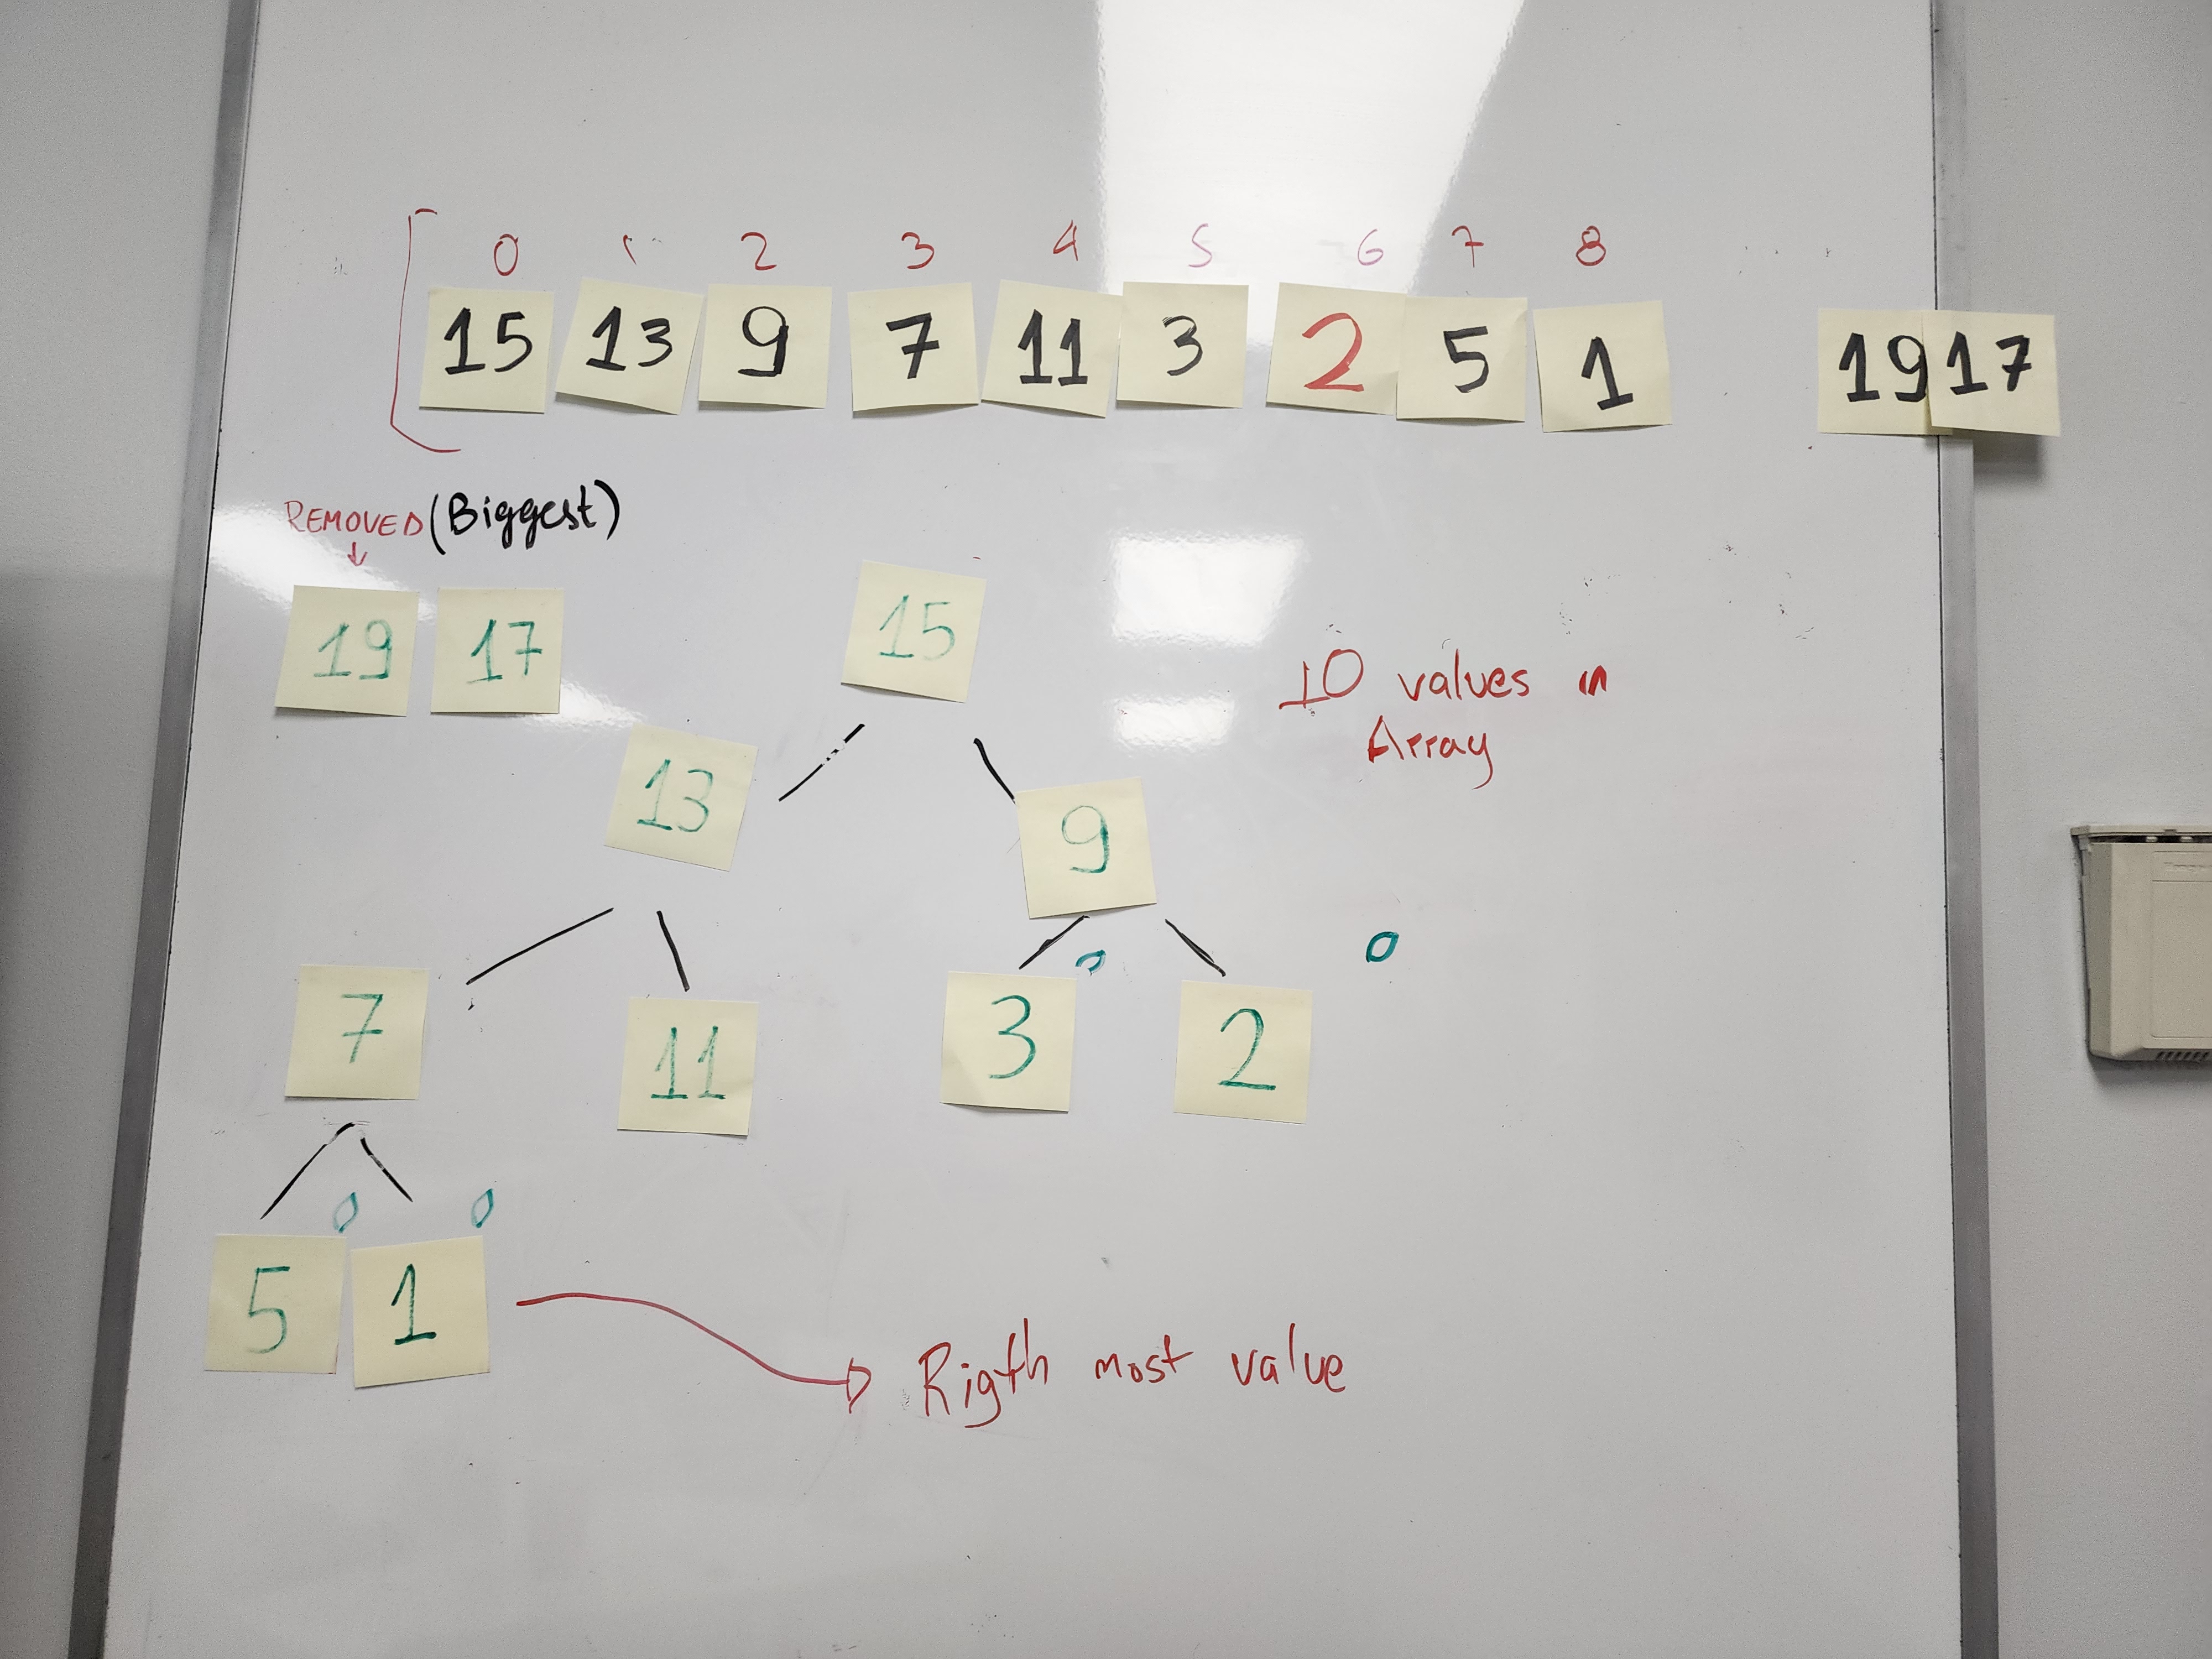 0 1 2 3 4 5 6 7 8
15 13 9 7 11 3 2 5 1 19 17
REMOVED (Biggest)
19 17 15
10 values in
Array
13 9
0 0
7 11 3 2
0 0
5 1
Rigth most value